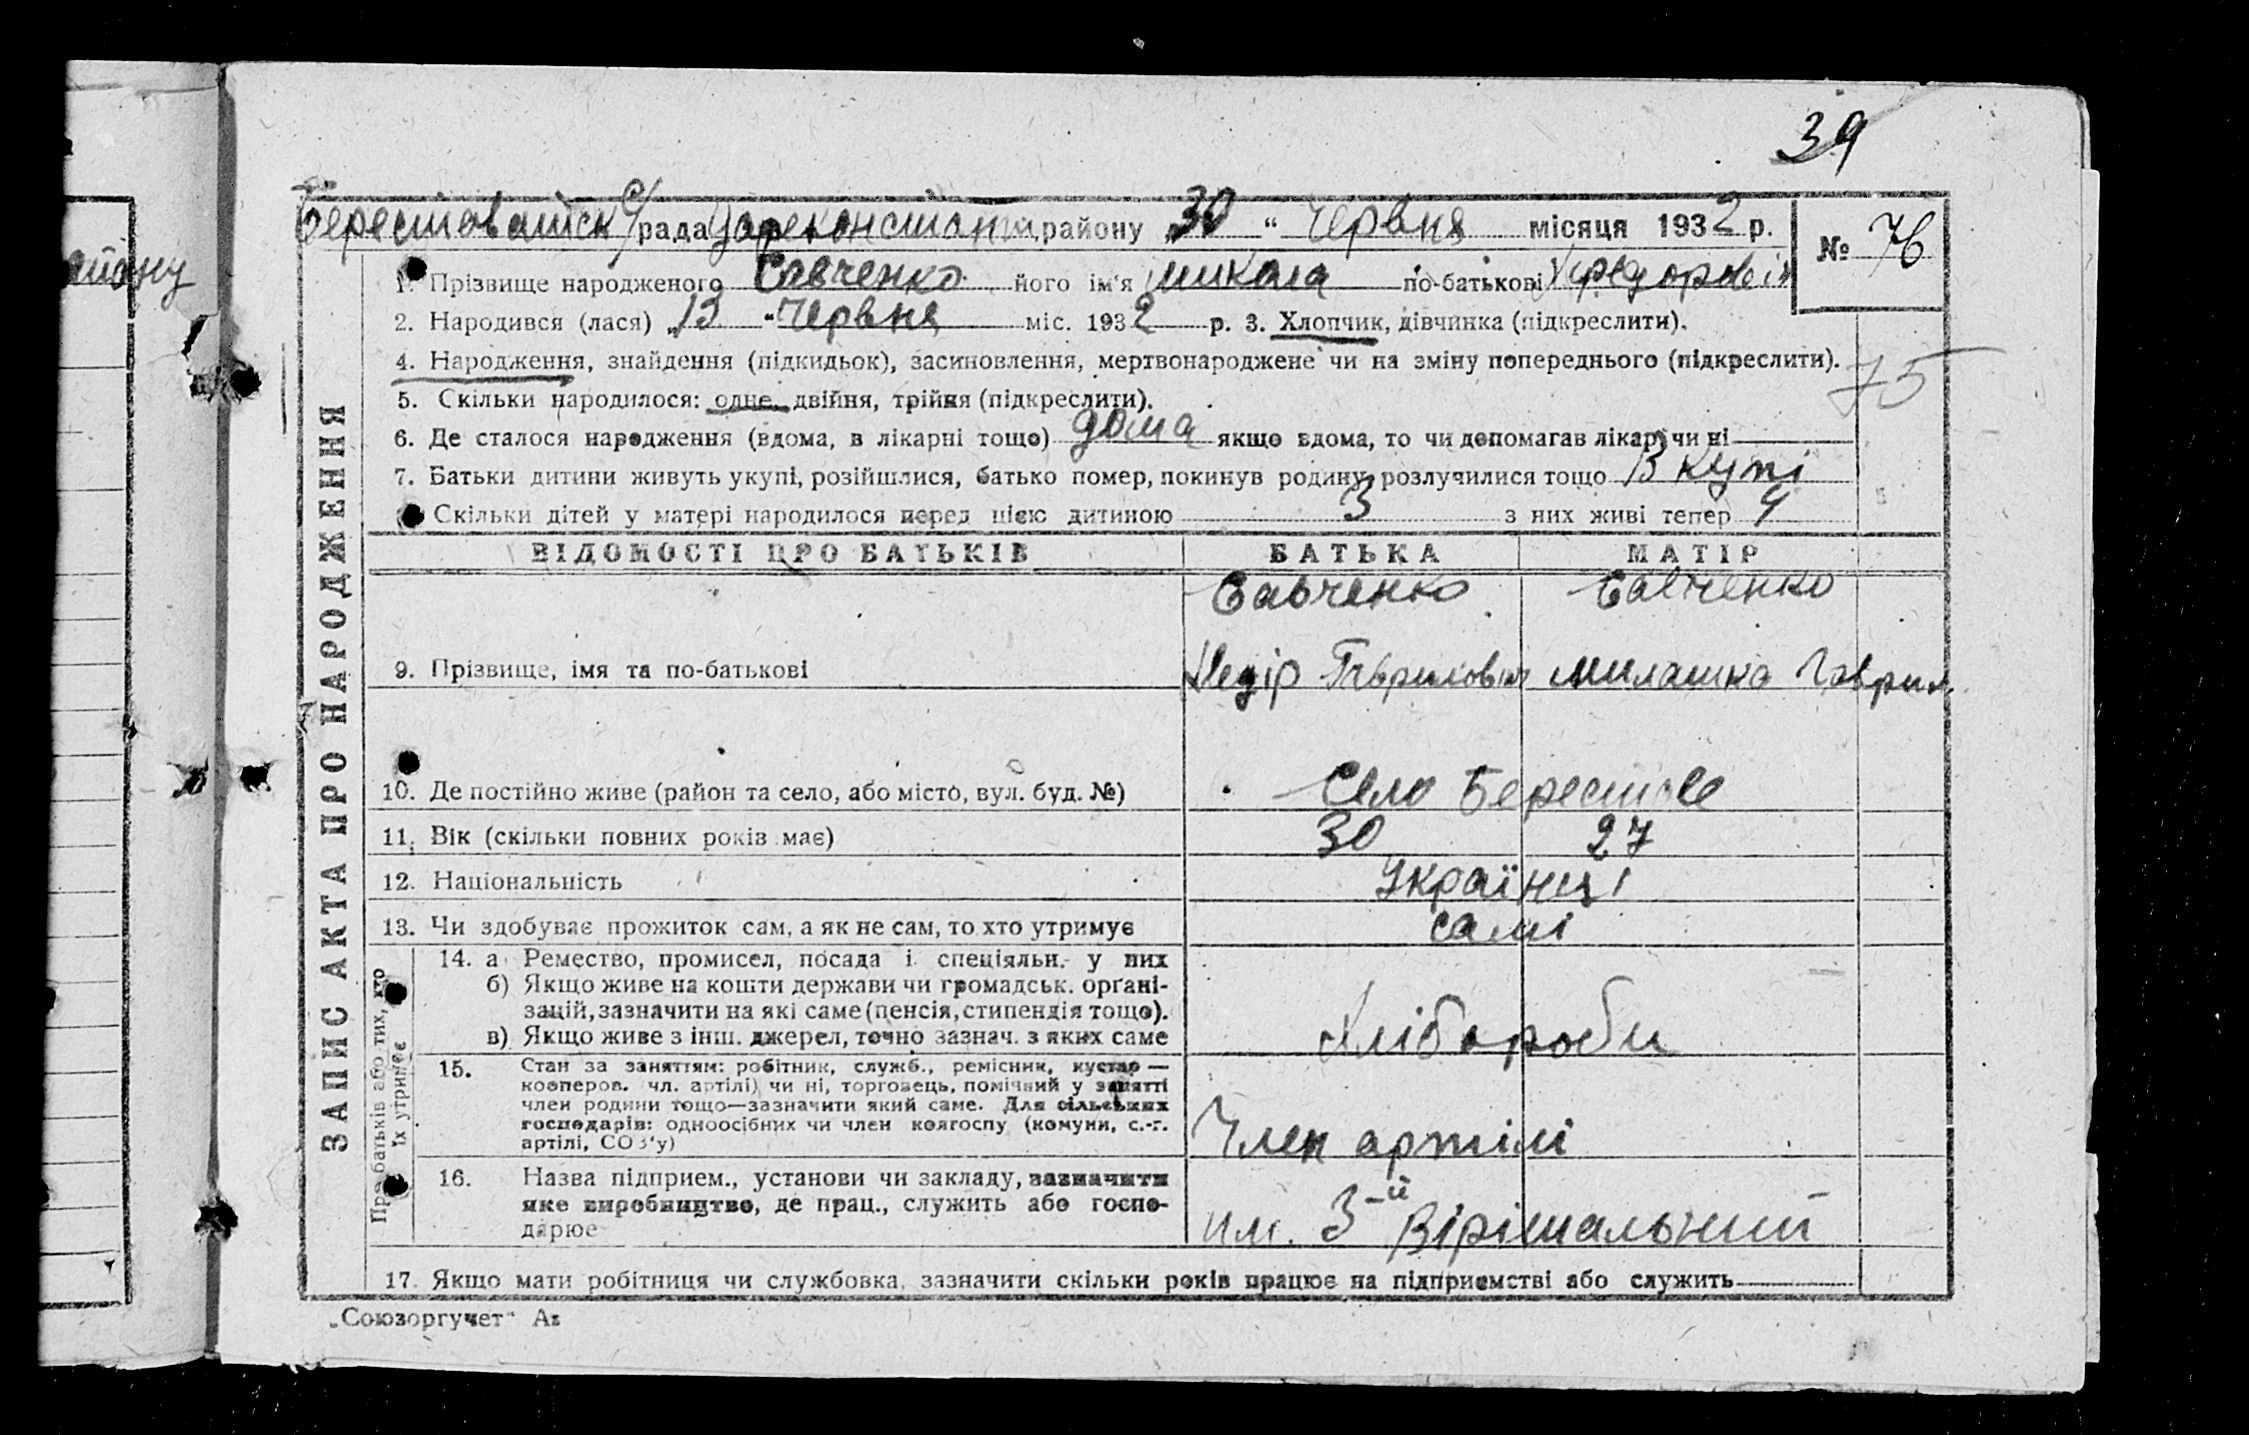 39
Берестоватск с/рада Цареконстант. району „30“ Червня місяця 1932 р.
№ 76
айону
1. Прізвище народженого Савченко його ім'я Микола по-батькові
2. Народився (лася) „13“ Червня міс. 1932 р. 3. Хлопчик, дівчинка (підкреслити).
4. Народження, знайдення (підкидьок), засиновлення, мертвонароджене чи на зміну попереднього (підкреслити).
75
5. Скільки народилося: одне, двійня, трійня (підкреслити).
6. Де сталося народження (вдома, в лікарні тощо) дома якщо вдома, то чи допомагав лікар чи ні
7. Батьки дитини живуть укупі, розійшлися, батько помер, покинув родину, розлучилися тощо В купі
Скільки дітей у матері народилося перед цією дитиною 3 з них живі тепер 4
ВІДОМОСТІ ПРО БАТЬКІВ БАТЬКА МАТІР
Савченко Савченко
9. Прізвище, імя та по-батькові Хведір Гаврилович Милашка Гаврил.
10. Де постійно живе (район та село, або місто, вул. буд. №) Село Берестове
11. Вік (скільки повних років має) 30 27
12. Національність Українці
13. Чи здобуває прожиток сам, а як не сам, то хто утримує самі
14. а Ремество, промисел, посада і спеціяльн. у них
б) Якщо живе на кошти держави чи громадськ. орґані-
зацій, зазначити на які саме (пенсія, стипендія тощо).
в) Якщо живе з інш. джерел, точно зазнач. з яких саме
Хлібороби
15. Стан за заняттям: робітник, служб., ремісник, кустар —
кооперов. чл. артілі) чи ні, торговець, помічний у занятті
член родини тощо—зазначити який саме. Для сільських
господарів: одноосібних чи член колгоспу (комуни, с.-г.
артілі, СОЗ'у)
Член артілі
16. Назва підприєм., установи чи закладу, зазначити
яке виробництво, де прац., служить або госпо-
дарює
им. 3-й Вірішальний
17. Якщо мати робітниця чи службовка, зазначити скільки років працює на підприємстві або служить
ЗАПИС АКТА ПРО НАРОДЖЕННЯ
Про батьків або тих, хто
їх утримує
„Союзоргучет“